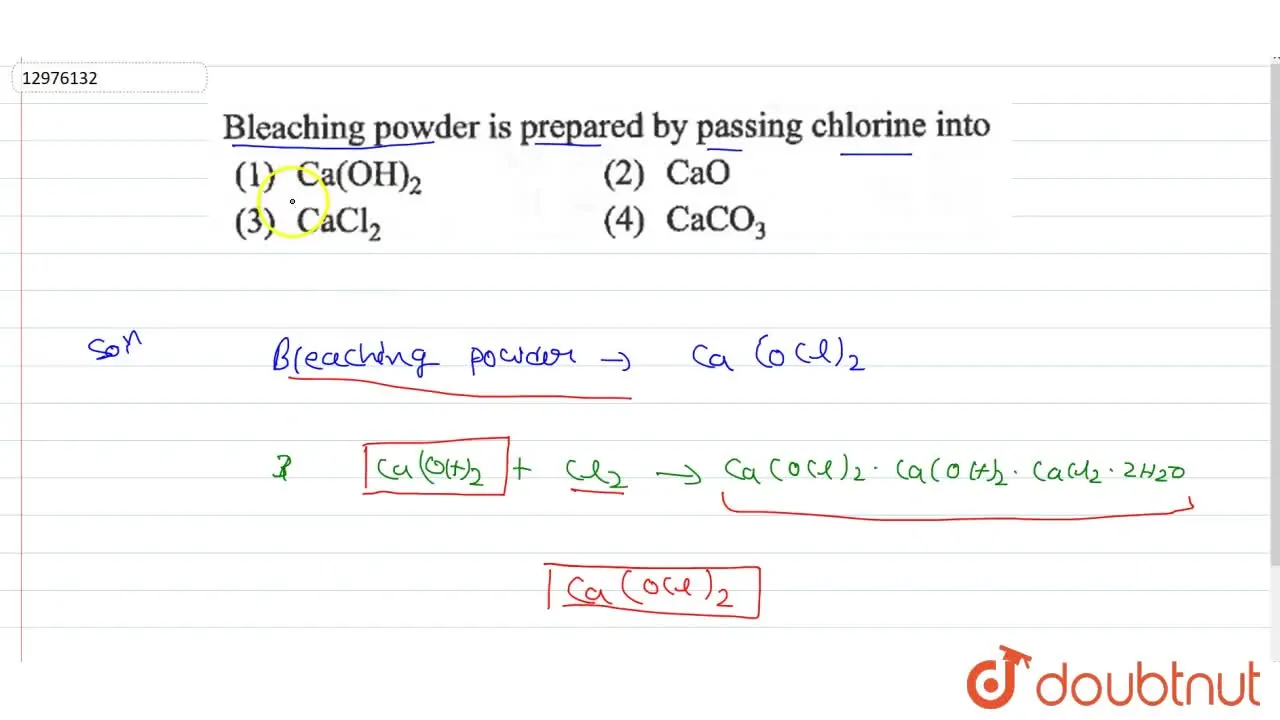 12976132
Bleaching powder is prepared by passing chlorine into
(1) Ca(OH)₂ (2) CaO
(3) CaCl₂ (4) CaCO₃
Solⁿ Bleaching powder → Ca (OCl)₂
Ca(OH)₂ + Cl₂ → Ca(OCl)₂ · Ca(OH)₂ · CaCl₂ · 2H₂O
Ca(OCl)₂
doubtnut